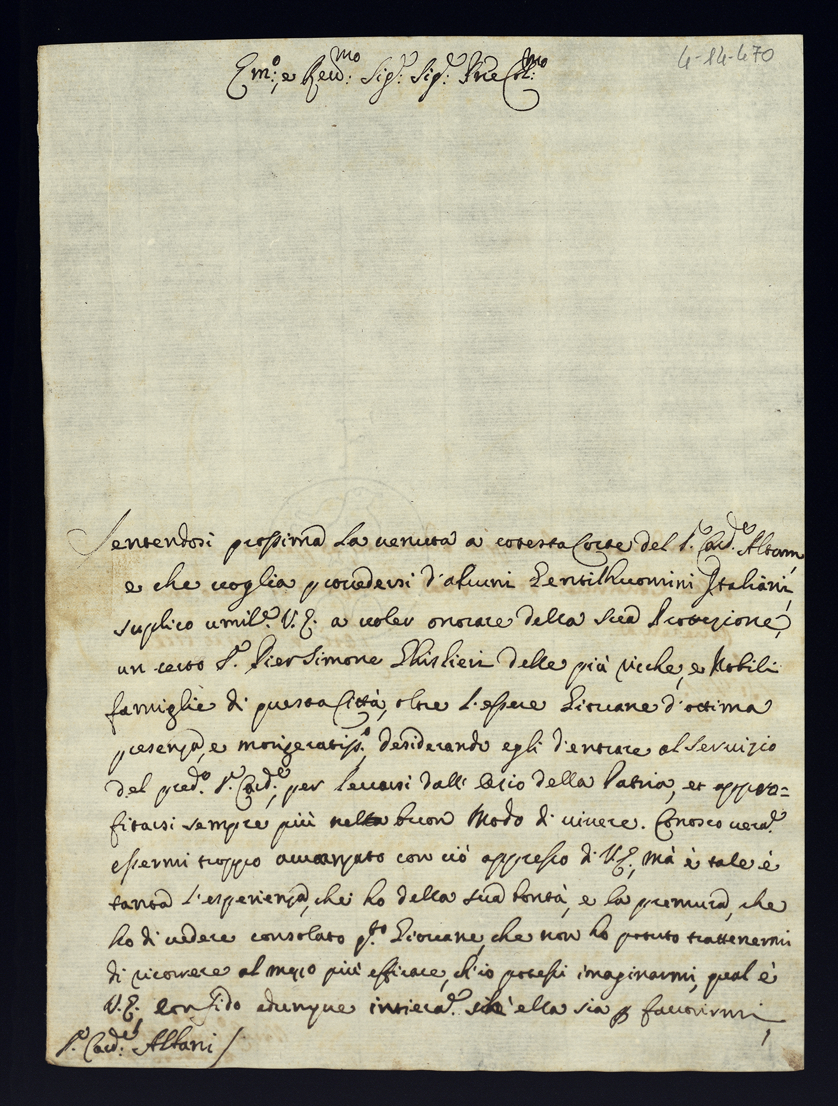 4-14-470
Em:º e Reu:mo Sig:r Sig:r Prōe Col:mo
Sentendosi prossima la venuta a cotesta Corte del S.r Card.e
e che voglia provedersi d'alcuni Gentilhuomini Italiani,
suplico umil.e V.E. a voler onorare della sua Protezione,
un certo S.r Pier Simone Ghislieri delle più ricche, e Nobili
famiglie di questa Città, oltre l'essere Giovane d'ottima
presenza, e morigeratiss.º, desiderando egli d'entrare al Servizio
del pred.º S.r Card.e, per levarsi dall' Ozio della Patria, et appro=
fitarsi sempre più nella buon Modo di vivere. Conosco verā.e
essermi troppo avvanzato con ciò appresso di V.E., mà è tale è
tanta l'esperienza, che ho della sua bontà, e la premura, che
ho di vedere consolato q.to Giovane, che non ho potuto trattenermi
di ricorrere al mezo più efficace, ch'io potessi imaginarmi, qual è
V.E. Confido adunque intiera.e ch'ella sia p favorirmi,
S.r Card.e Albani